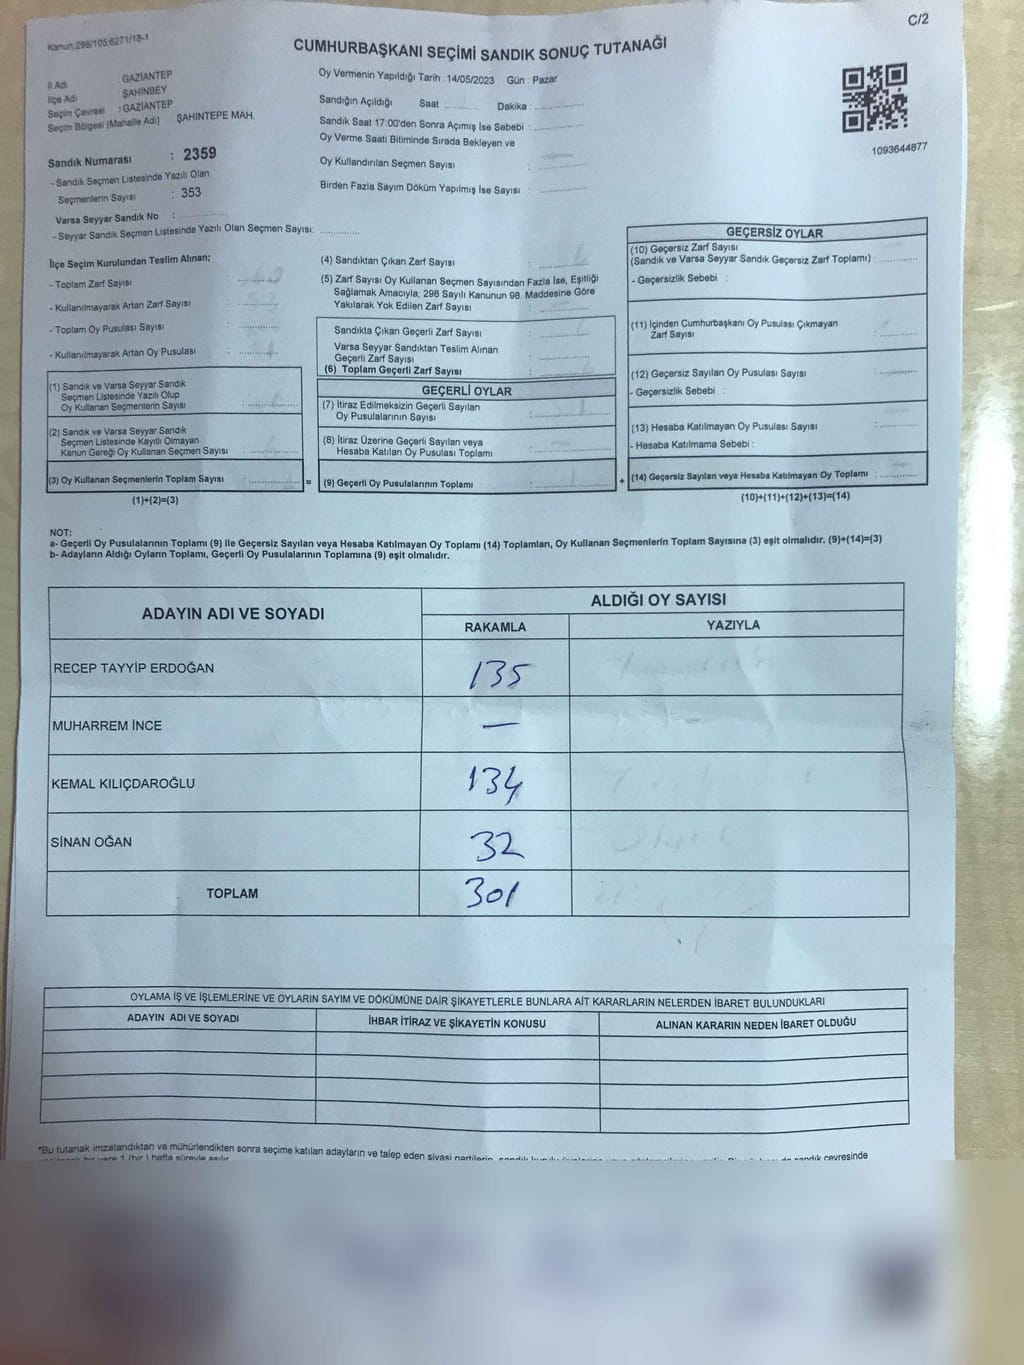 C/2
Kanun:298/105;6271/18-1
CUMHURBAŞKANI SEÇİMİ SANDIK SONUÇ TUTANAĞI
İl Adı GAZİANTEP
İlçe Adı ŞAHİNBEY
Seçim Çevresi : GAZİANTEP
Seçim Bölgesi (Mahalle Adı) ŞAHİNTEPE MAH.
Sandık Numarası : 2359
- Sandık Seçmen Listesinde Yazılı Olan
Seçmenlerin Sayısı : 353
Varsa Seyyar Sandık No :
- Seyyar Sandık Seçmen Listesinde Yazılı Olan Seçmen Sayısı:
Oy Vermenin Yapıldığı Tarih : 14/05/2023 Gün : Pazar
Sandığın Açıldığı Saat Dakika :
Sandık Saat 17:00'den Sonra Açımış İse Sebebi :
Oy Verme Saati Bitiminde Sırada Bekleyen ve
Oy Kullandırılan Seçmen Sayısı :
Birden Fazla Sayım Döküm Yapılmış İse Sayısı :
1093644877
İlçe Seçim Kurulundan Teslim Alınan;
- Toplam Zarf Sayısı :
- Kullanılmayarak Artan Zarf Sayısı :
- Toplam Oy Pusulası Sayısı :
- Kullanılmayarak Artan Oy Pusulası :
(1) Sandık ve Varsa Seyyar Sandık
Seçmen Listesinde Yazılı Olup
Oy Kullanan Seçmenlerin Sayısı :
(2) Sandık ve Varsa Seyyar Sandık
Seçmen Listesinde Kayıtlı Olmayan
Kanun Gereği Oy Kullanan Seçmen Sayısı :
(3) Oy Kullanan Seçmenlerin Toplam Sayısı : =
(1)+(2)=(3)
(4) Sandıktan Çıkan Zarf Sayısı :
(5) Zarf Sayısı Oy Kullanan Seçmen Sayısından Fazla İse, Eşitliği
Sağlamak Amacıyla; 298 Sayılı Kanunun 98. Maddesine Göre
Yakılarak Yok Edilen Zarf Sayısı :
Sandıkta Çıkan Geçerli Zarf Sayısı :
Varsa Seyyar Sandıktan Teslim Alınan
Geçerli Zarf Sayısı :
(6) Toplam Geçerli Zarf Sayısı :
GEÇERLİ OYLAR
(7) İtiraz Edilmeksizin Geçerli Sayılan
Oy Pusulalarının Sayısı :
(8) İtiraz Üzerine Geçerli Sayılan veya
Hesaba Katılan Oy Pusulası Toplamı :
(9) Geçerli Oy Pusulalarının Toplamı : +
GEÇERSİZ OYLAR
(10) Geçersiz Zarf Sayısı
(Sandık ve Varsa Seyyar Sandık Geçersiz Zarf Toplamı) :
- Geçersizlik Sebebi :
(11) İçinden Cumhurbaşkanı Oy Pusulası Çıkmayan
Zarf Sayısı :
(12) Geçersiz Sayılan Oy Pusulası Sayısı :
- Geçersizlik Sebebi :
(13) Hesaba Katılmayan Oy Pusulası Sayısı :
- Hesaba Katılmama Sebebi :
(14) Geçersiz Sayılan veya Hesaba Katılmayan Oy Toplamı :
(10)+(11)+(12)+(13)=(14)
NOT:
a- Geçerli Oy Pusulalarının Toplamı (9) ile Geçersiz Sayılan veya Hesaba Katılmayan Oy Toplamı (14) Toplamları, Oy Kullanan Seçmenlerin Toplam Sayısına (3) eşit olmalıdır. (9)+(14)=(3)
b- Adayların Aldığı Oyların Toplamı, Geçerli Oy Pusulalarının Toplamına (9) eşit olmalıdır.
ADAYIN ADI VE SOYADI
ALDIĞI OY SAYISI
RAKAMLA YAZIYLA
RECEP TAYYİP ERDOĞAN 135
MUHARREM İNCE —
KEMAL KILIÇDAROĞLU 134
SİNAN OĞAN 32
TOPLAM 301
OYLAMA İŞ VE İŞLEMLERİNE VE OYLARIN SAYIM VE DÖKÜMÜNE DAİR ŞİKAYETLERLE BUNLARA AİT KARARLARIN NELERDEN İBARET BULUNDUKLARI
ADAYIN ADI VE SOYADI İHBAR İTİRAZ VE ŞİKAYETİN KONUSU ALINAN KARARIN NEDEN İBARET OLDUĞU
*Bu tutanak imzalandıktan ve mühürlendikten sonra seçime katılan adayların ve talep eden siyasi partilerin, sandık